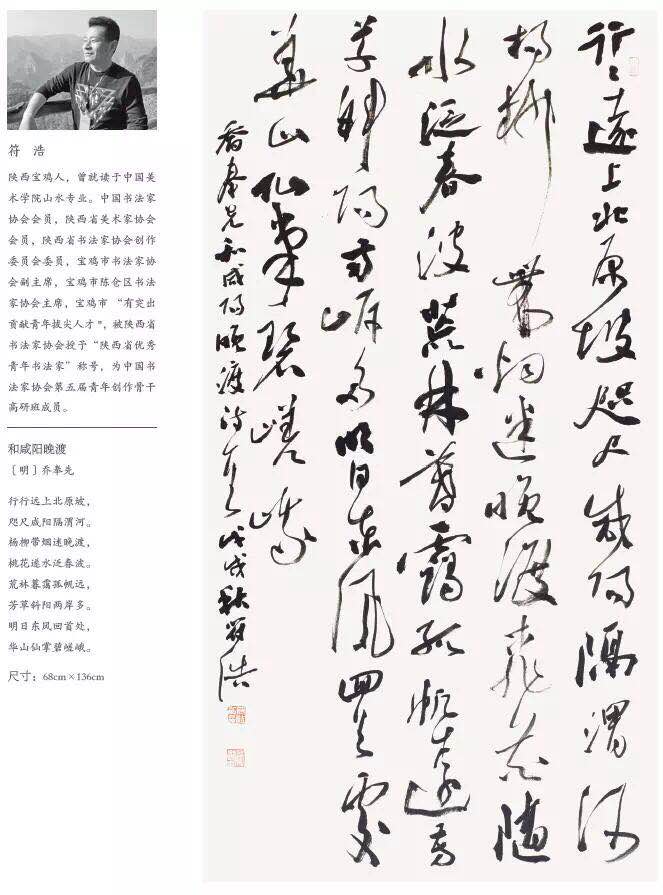 符 浩
陕西宝鸡人，曾就读于中国美
术学院山水专业。中国书法家
协会会员，陕西省美术家协会
会员，陕西省书法家协会创作
委员会委员，宝鸡市书法家协
会副主席，宝鸡市陈仓区书法
家协会主席，宝鸡市 “有突出
贡献青年拔尖人才”，被陕西省
书法家协会授予“陕西省优秀
青年书法家” 称号，为中国书
法家协会第五届青年创作骨干
高研班成员。
和咸阳晚渡
［明］乔拳先
行行远上北原坡，
咫尺咸阳隔渭河。
杨柳带烟迷晚渡，
桃花遂水泛春波。
荒林暮霭孤帆远，
芳草斜阳两岸多。
明日东风回首处，
华山仙掌碧嵯峨。
尺寸：68cm×136cm
行行遠上北原坡咫尺咸陽隔渭河
楊柳帶烟迷晚渡桃花隨
水泛春波荒林暮靄孤帆遠芳
草斜陽両岸多明日東風回首處
華山仙掌碧嵯峨
和咸陽晚渡詩一首戊戌秋符浩